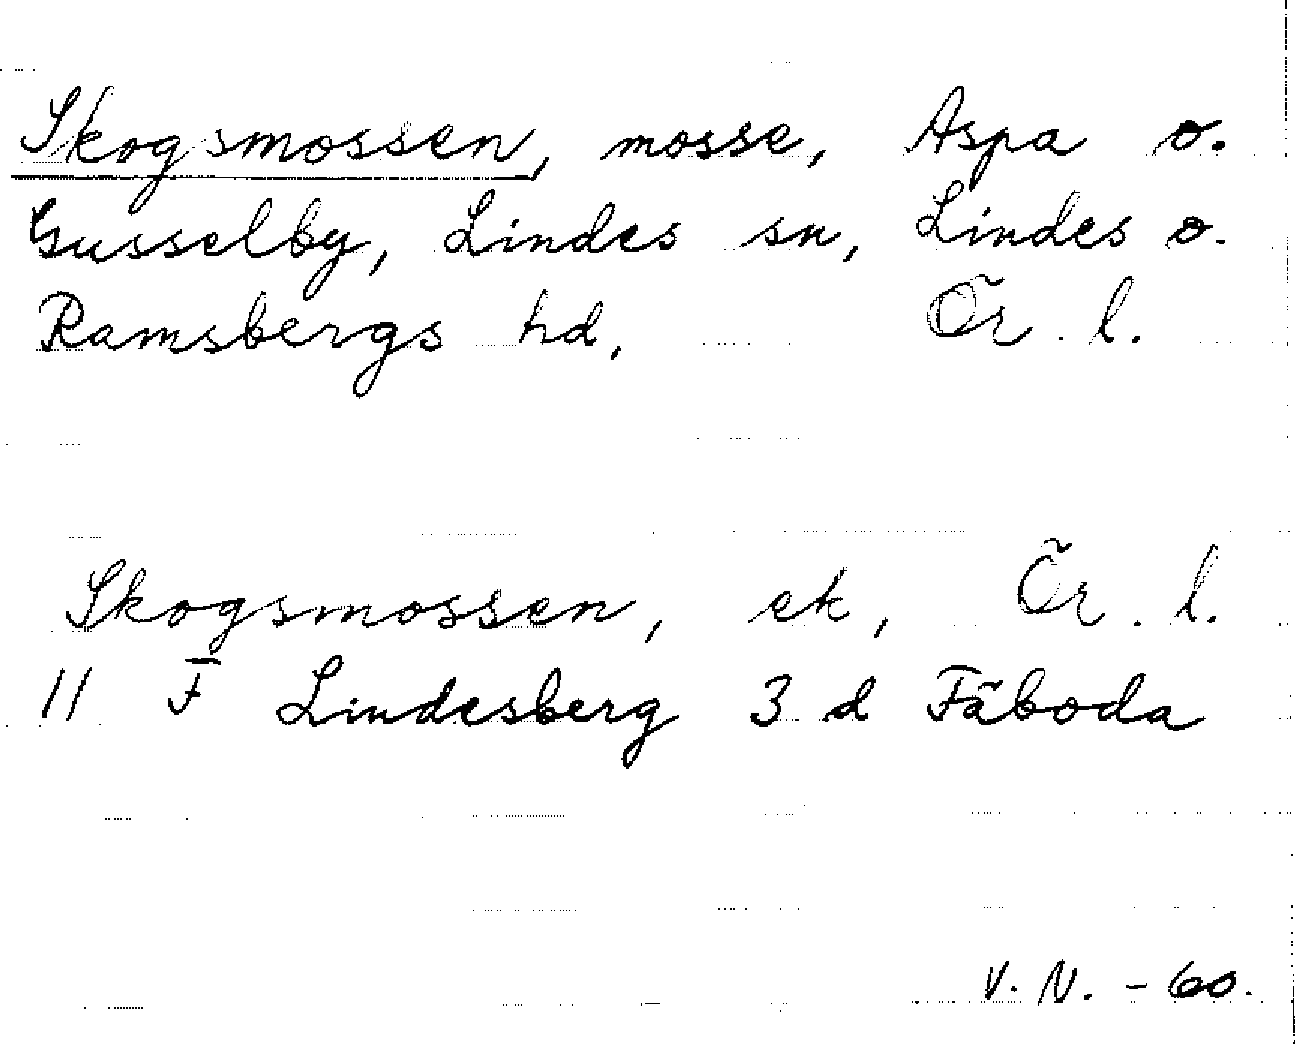 Skogsmossen, mosse, Aspa o.
Gusselby, Lindes sn, Lindes o.
Ramsbergs hd, Ör. l.
Skogsmossen, ek, Ör. l.
11 F Lindesberg 3 d Fäboda
V. N. - 60.